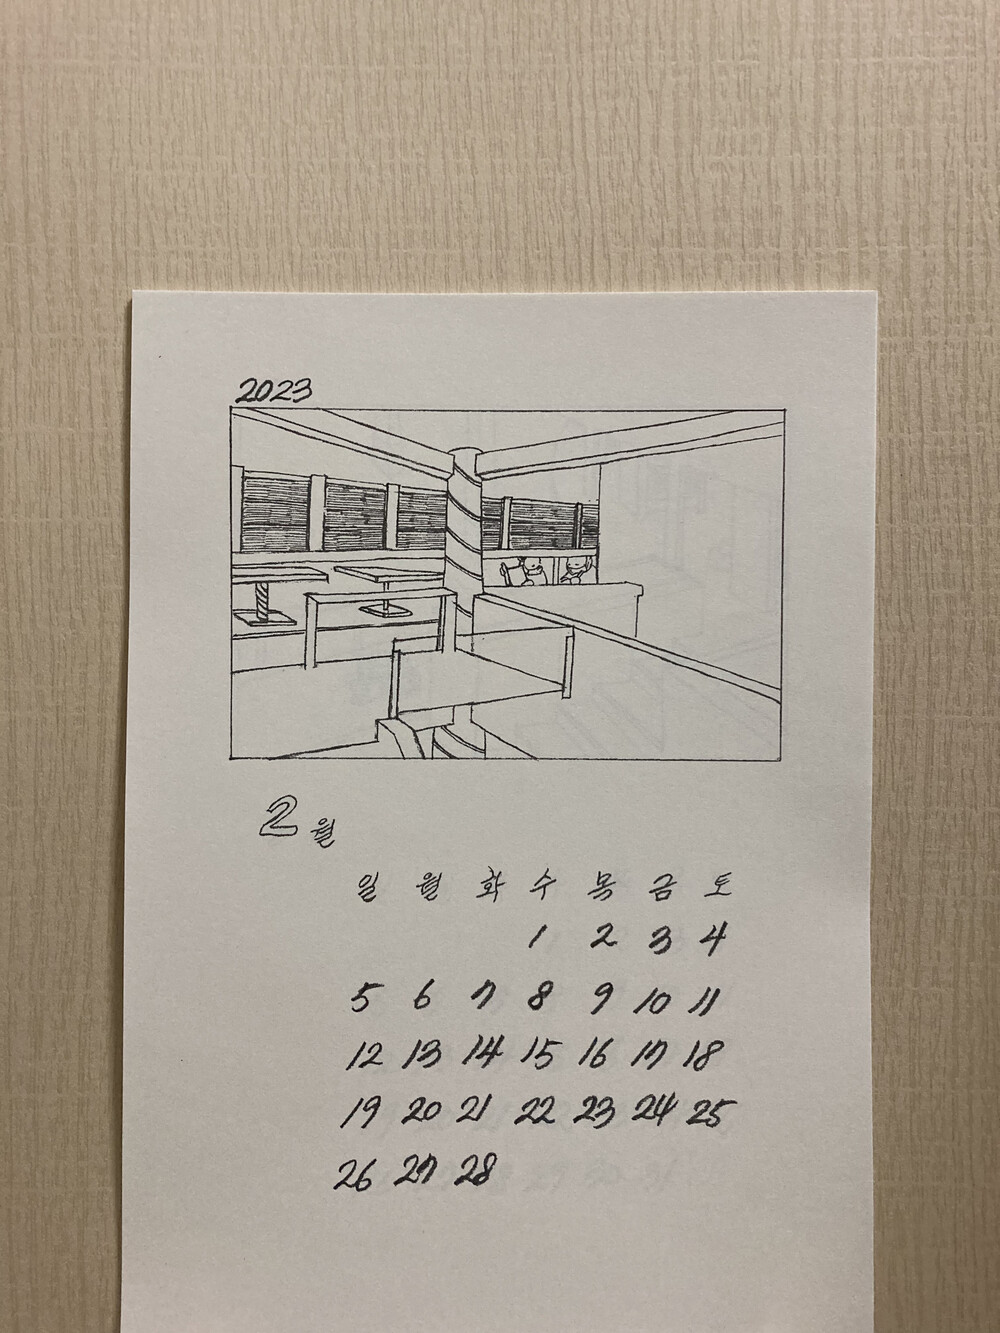 2023
2월
일 월 화 수 목 금 토
1 2 3 4
5 6 7 8 9 10 11
12 13 14 15 16 17 18
19 20 21 22 23 24 25
26 27 28